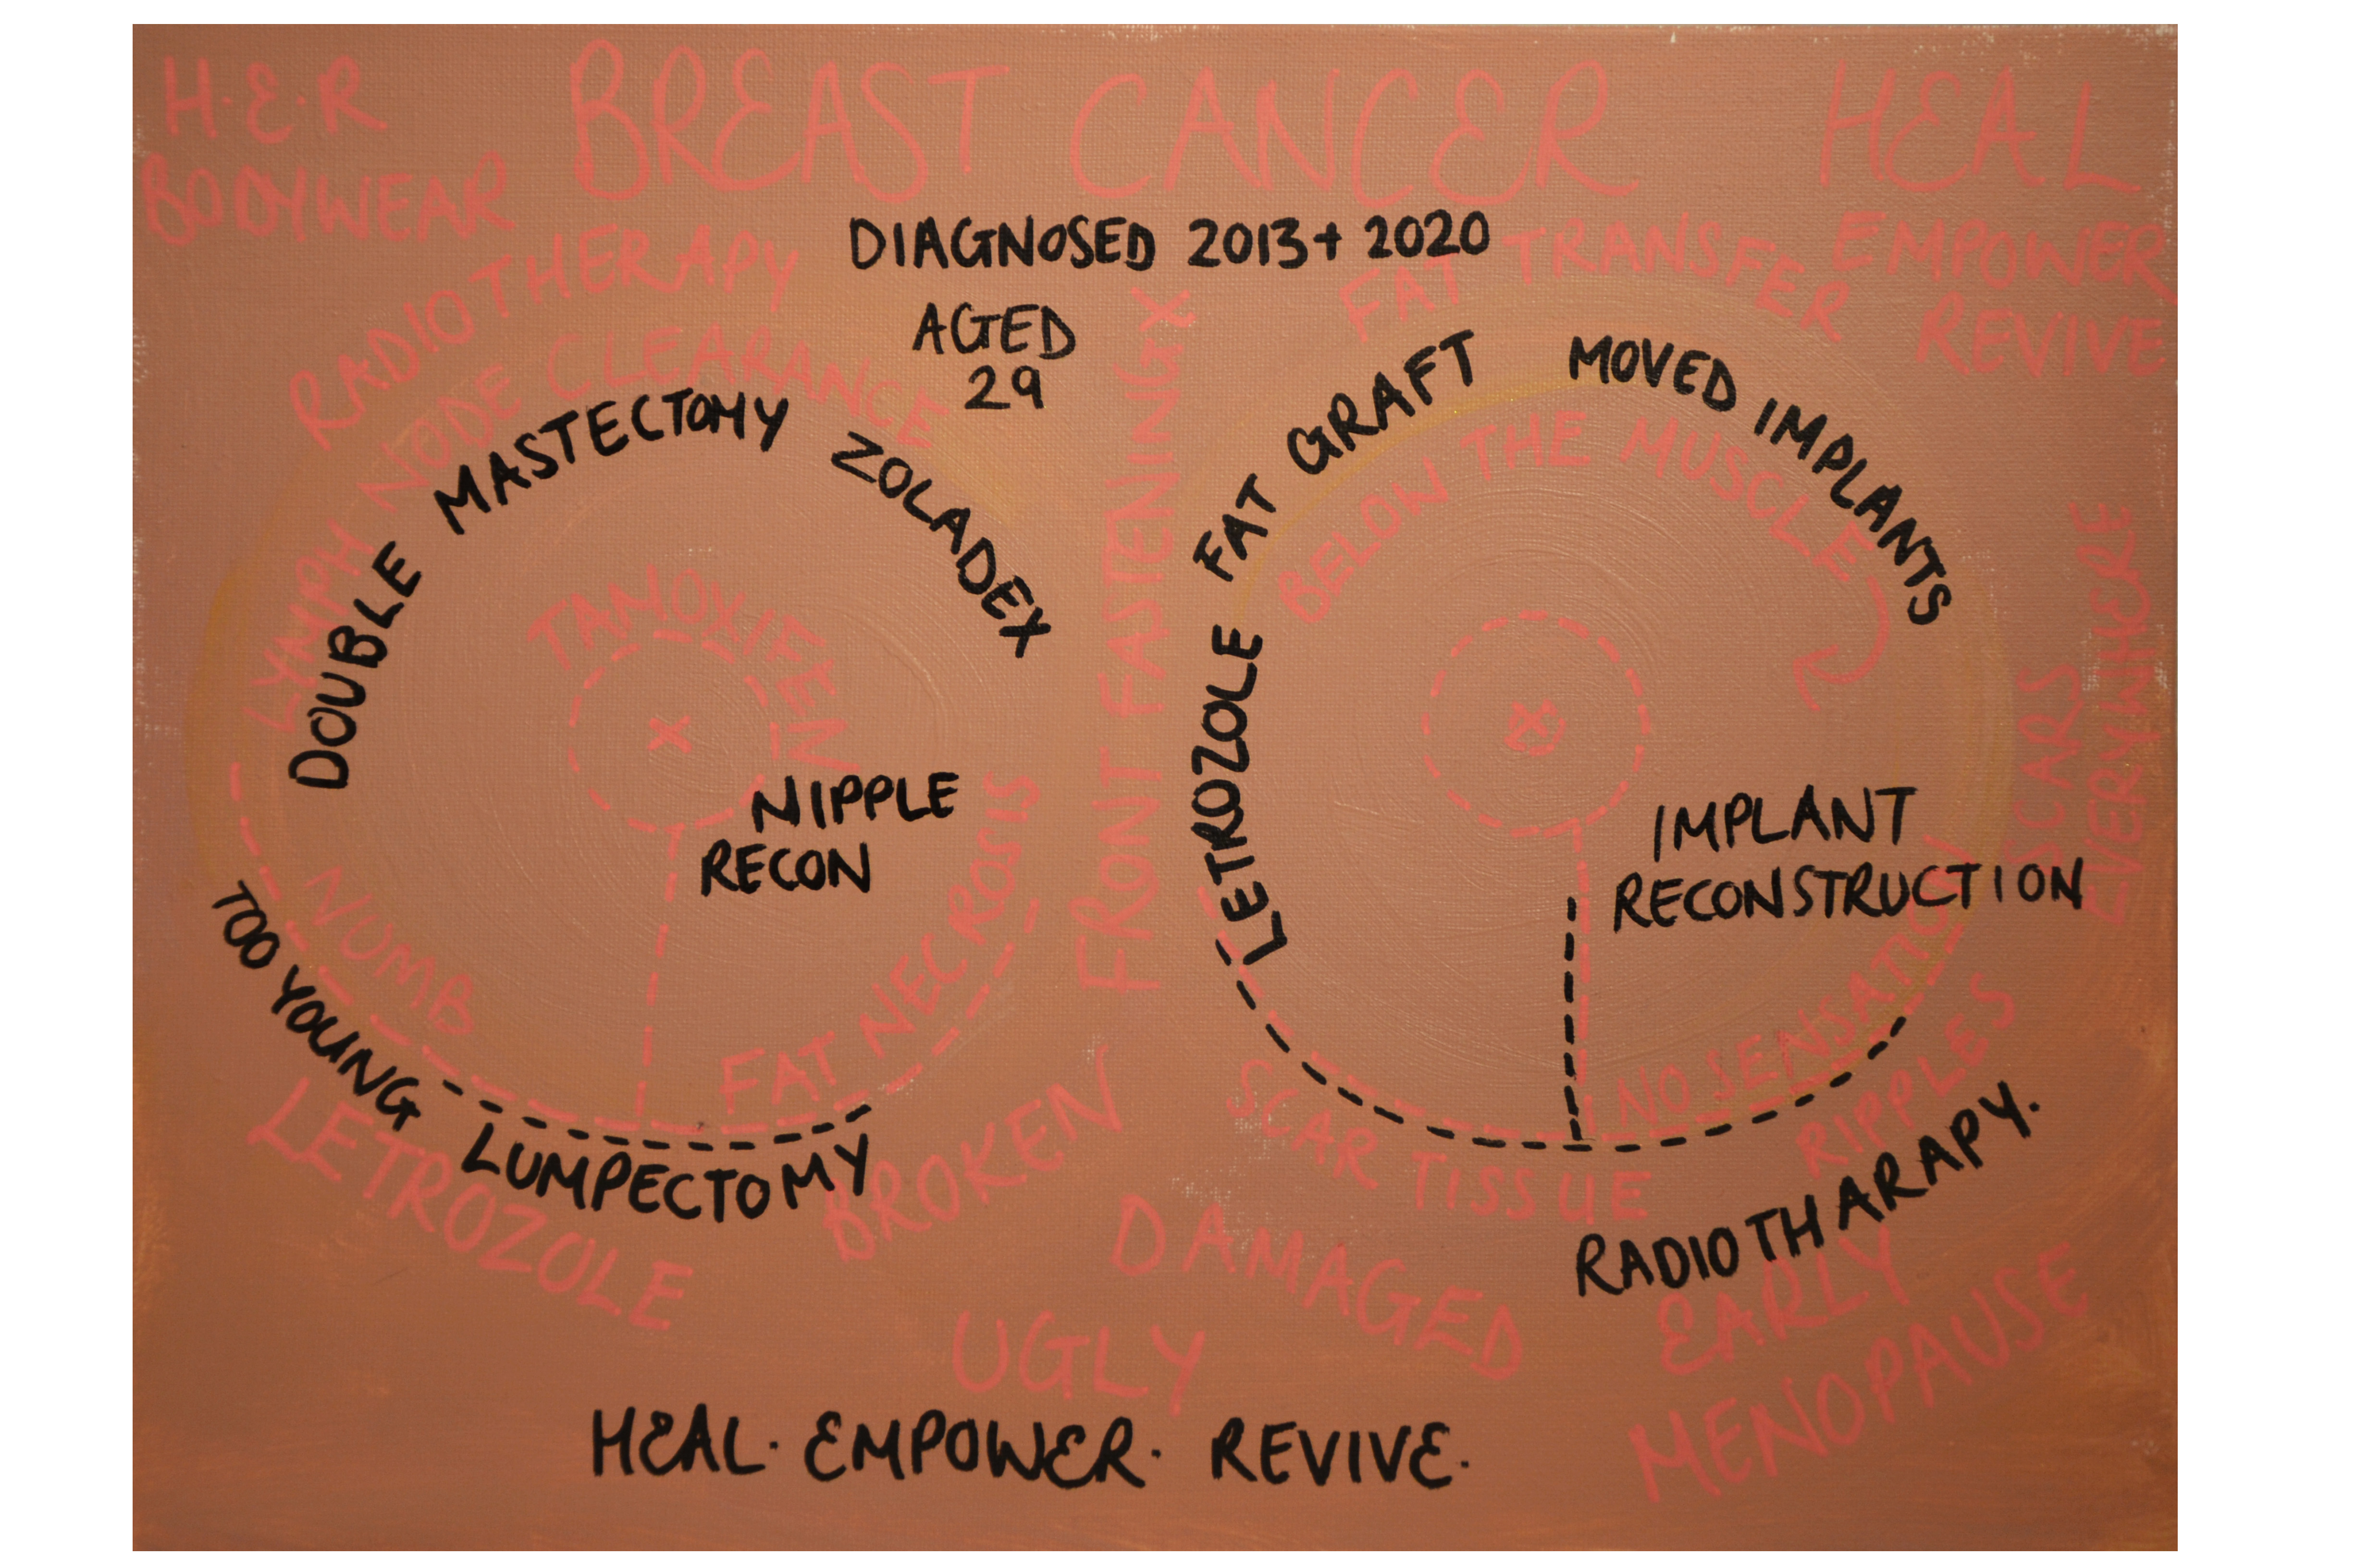 H.E.R
BODYWEAR
BREAST CANCER
HEAL
EMPOWER
REVIVE
DIAGNOSED 2013+ 2020
AGED
29
RADIOTHERAPY
LYMPH NODE CLEARANCE
DOUBLE MASTECTOMY ZOLADEX
TAMOXIFEN
NIPPLE
RECON
NUMB
FAT NECROSIS
TOO YOUNG LUMPECTOMY
LETROZOLE
FRONT FASTENING
FAT TRANSFER
LETROZOLE FAT GRAFT MOVED IMPLANTS
BELOW THE MUSCLE
IMPLANT
RECONSTRUCTION
NO SENSATION
RIPPLES
SCARS
EVERYWHERE
SCAR TISSUE
RADIOTHARAPY.
BROKEN
DAMAGED
UGLY
EARLY
MENOPAUSE
HEAL. EMPOWER. REVIVE.